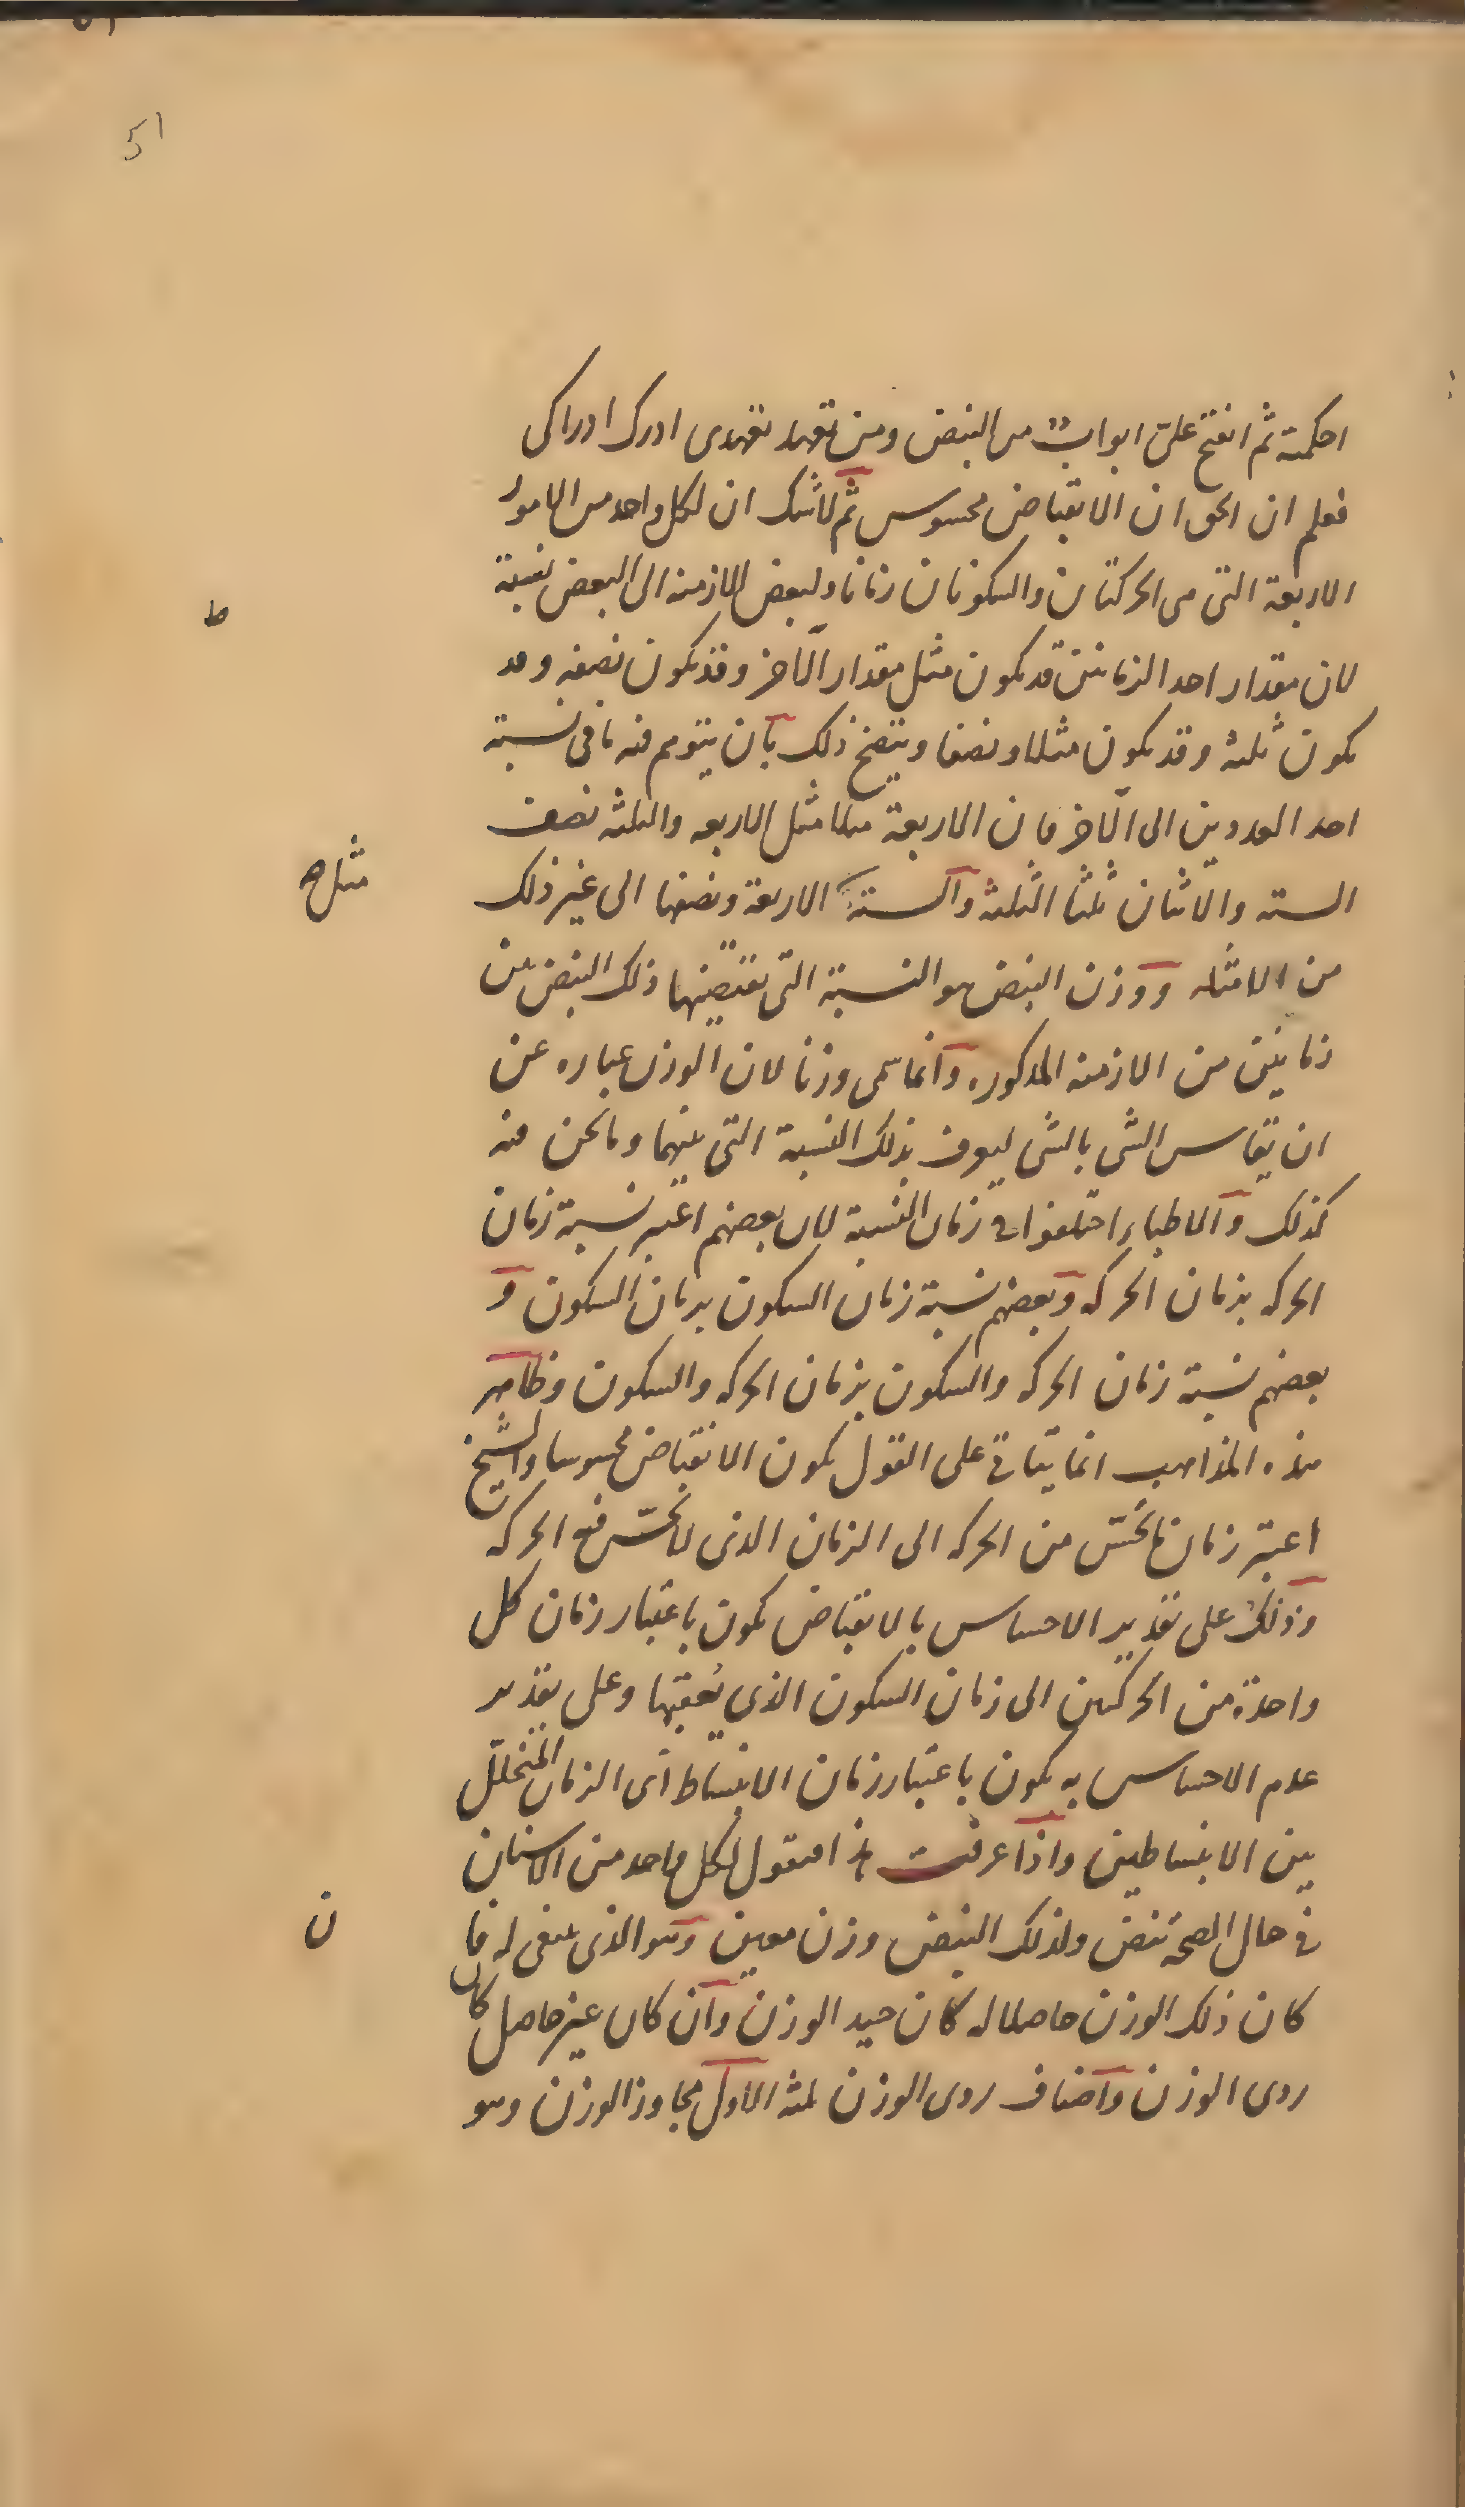 51
احكمته ثم انفتح علىّ ابواب من النبض ومن تعهد تعهدى ادرك ادراكى
فعلم ان الحق ان الانقباض محسوس ثم لاشك ان لكل واحد من الامور
الاربعة التى هى الحركتان والسكونان زمانا ولبعض الازمنه الى البعض نسبة
لان مقدار احد الزمانين قد يكون مثل مقدار الآخر وقد يكون نصفه وقد
يكون ثلثه وقد يكون مثلا ونصفا ويتضح ذلك بان يتوهم فيه ما فى نسبة
احد العددين الى الآخر فان الاربعة مثلا مثل الاربعه والثلثه نصف
الستة والاثنان ثلثا الثلثه والستة الاربعة ونصفها الى غير ذلك
مثل صح
من الامثله ووزن النبض هو النسبة التى يقتضيها ذلك النبض بين
زمانين من الازمنه المذكوره وانما سمى وزنا لان الوزن عباره عن
ان يقاس الشى بالشى ليعرف بذلك النسبة التى بينهما وما نحن فيه
كذلك والاطباء اختلفوا فى زمان النسبة لان بعضهم اعتبر نسبة زمان
الحركه بزمان الحركه وبعضهم نسبة زمان السكون بزمان السكون و
بعضهم نسبة زمان الحركه والسكون بزمان الحركه والسكون وظاهر
هذه المذاهب انما يتاتى على القول بكون الانقباض محسوسا والشيخ
اعتبر زمان ما يُحَسّ من الحركه الى الزمان الذى لا يحسّ فيه الحركه
وذلك على تقدير الاحساس بالانقباض يكون باعتبار زمان كل
واحدة من الحركتين الى زمان السكون الذى يعقبها وعلى تقدير
عدم الاحساس به يكون باعتبار زمان الانبساط الى الزمان المتخلّل
بين الانبساطين واذا عرفت هذا فنقول لكل واحد من الاسنان
فى حال الصحة نبض ولذلك النبض وزن معين وهو الذى ينبغى له فان
كان ذلك الوزن حاصلا له كان جيد الوزن وان كان غير حاصل كان
ردى الوزن واصناف ردى الوزن ثلثه الاول مجاوز الوزن وهو